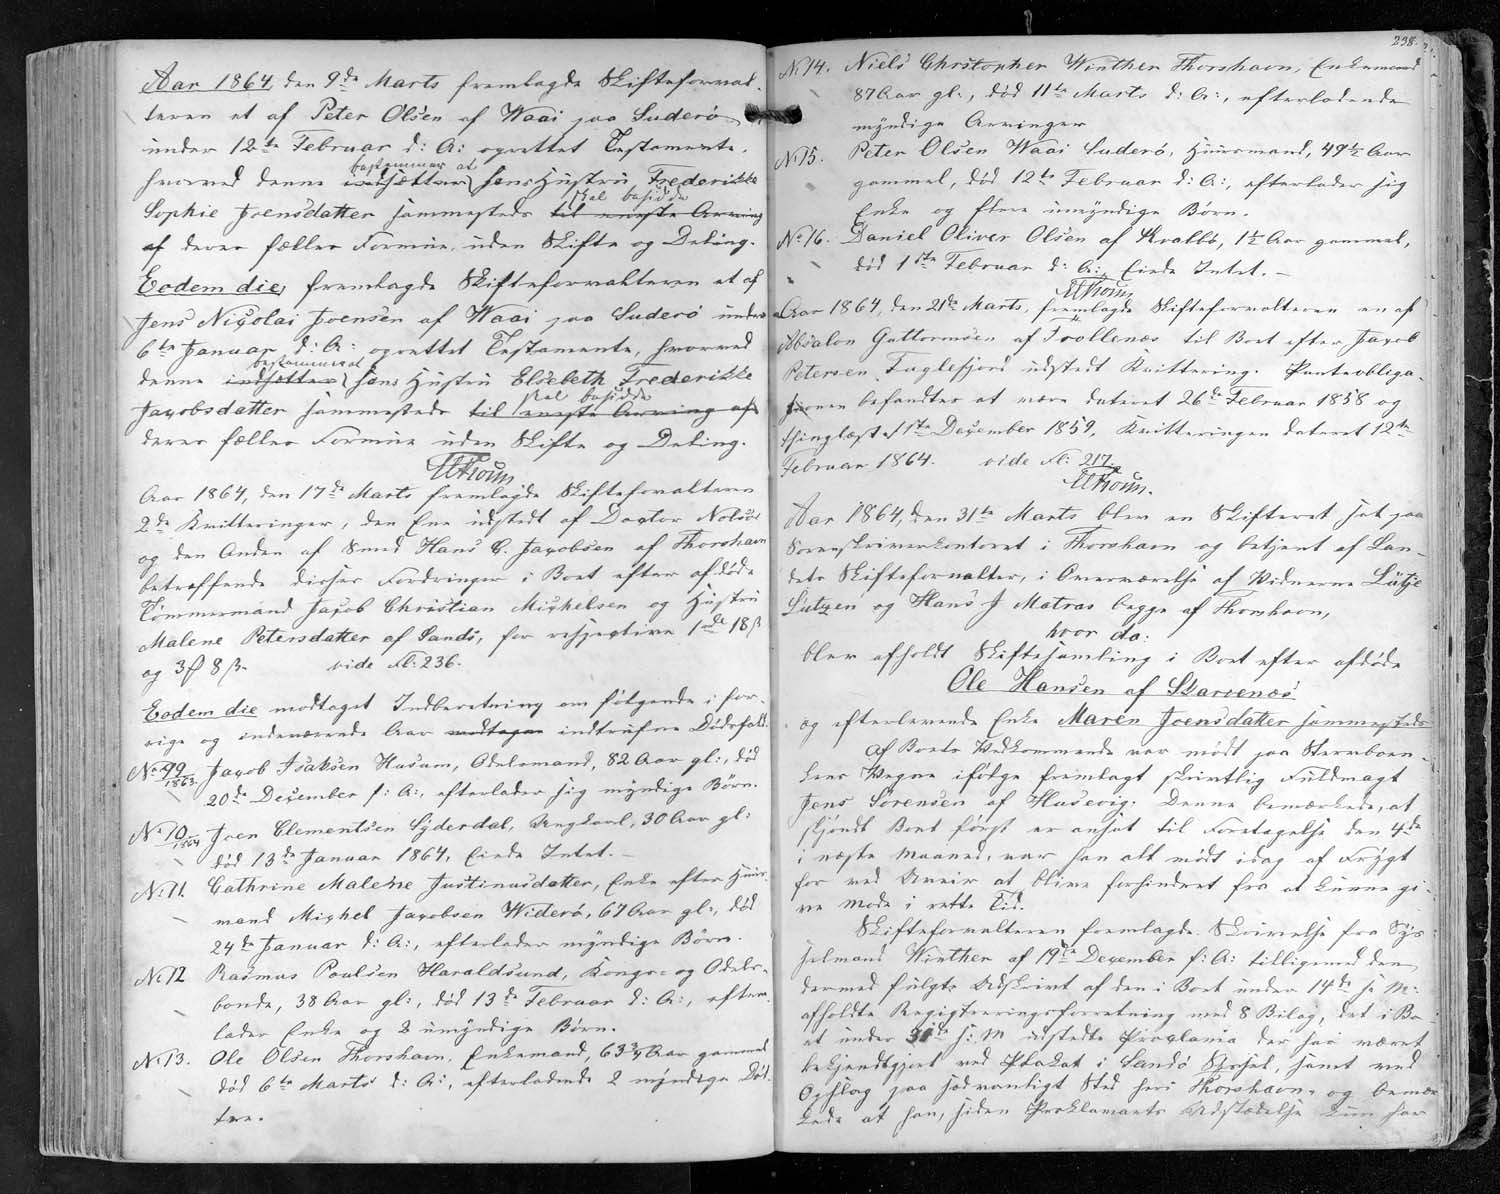 Aar 1864, den 9de Marts fremlagde Skifteforval-
teren et af Peter Olsen af Waai paa Suderø
under 12te Februar d: A: oprettet Testamente,
bestemmer at
hvorved denne indsætter hans Hustru Frederikke
skal besidde
Sophie Joensdatter sammesteds til eneste Arving
af deres fælles Formue uden Skifte og Deling.
Eodem die, fremlagde Skifteforvalteren et af
Jens Nicolai Joensen af Waai paa Suderø under
6te Januar d: A: oprettet Testamente, hvorved
bestemmer at
denne indsætter hans Hustru Elsebeth Frederikke
skal besidde
Jacobsdatter sammesteds til eneste Arving af
deres fælles Formue uden Skifte og Deling.
Aar 1864, den 17de Marts fremlagde Skifteforvalteren
2de Kvitteringer, den Ene udstedt af Doctor Nolsøe
og den Anden af Smed Hans C. Jacobsen af Thorshavn
betræffende disses Fordringer i Boet efter afdøde
Tømmermand Jacob Christian Michelsen og Hustru
Malene Petersdatter af Sands, for respective 1 18 ß
og 3 8 ß. vide Fl: 236.
Eodem die modtaget Indberetning om følgende i for-
rige og indeværende Aar modtagen indtrufne Dødsfald.
No 99/1863 Jacob Isaksen Husum, Odelsmand, 82 Aar gl:, død
20de December f: A:, efterlader sig myndige Børn.
No 10/1864 Joen Clementsen Syderdal, Ungkarl, 30 Aar gl:
død 13de Januar 1864, Eiede Intet. –
No 11. Cathrine Malene Justinusdatter, Enke efter Huus-
mand Michel Jacobsen Widerø, 67 Aar gl:, død
24de Januar d: A:, efterlader myndige Børn.
No 12 Rasmus Poulsen Haraldsund, Konge- og Odels-
bonde, 38 Aar gl:, død 13de Februar d: A:, efter-
lader Enke og 2 umyndige Børn.
No 13. Ole Olsen Thorshavn, Enkemand, 63 3/4 Aar gammel
død 6te Marts d: A:, efterladende 2 myndige Døt-
tre.
238.
No 14. Niels Christopher Winther Thorshavn, Enkemand
87 Aar gl:, død 11te Marts d: A:, efterladende
myndige Arvinger
No 15. Peter Olsen Waai Suderø, Huusmand, 49 1/2 Aar
gammel, død 12te Februar d: A:, efterlader sig
Enke og flere umyndige Børn.
No 16. Daniel Oliver Olsen af Kvalbø, 1 1/2 Aar gammel,
død 1ste Februar d: A:, Eiede Intet. –
Aar 1864, den 21de Marts, fremlagde Skifteforvalteren en af
Absalon Guttormsen af Trøllenæs til Boet efter Jacob
Petersen Fuglefjord udstedt Kvittering. Panteobliga-
tionen befandtes at være dateret 26de Februar 1858 og
thinglæst 1ste December 1859, Kvitteringen dateret 12te
Februar 1864. vide Fl: 217.
Aar 1864, den 31te Marts blev en Skifteret sat paa
Sorenskriverkontoret i Thorshavn og betjent af Lan-
dets Skifteforvalter, i Overværelse af Vidnerne Lütje
Lützen og Hans J Matras begge af Thorshavn,
hvor da:
blev afholdt Skiftesamling i Boet efter afdøde
Ole Hansen af Skarvenæs
og efterlevende Enke Maren Joensdatter sammesteds
Af Boets Vedkommende var mødt paa Stervboen-
kens Vegne ifølge fremlagt skriftlig Fuldmagt
Jens Sørensen af Husevig. Denne bemærkede, at
skjøndt Boet først er ansat til Foretagelse den 4de
i næste Maaned, var han alt mødt idag af Frygt
for ved Uveir at blive forhindret fra at kunne gi-
ve Møde i rette Tid.
Skifteforvalteren fremlagde Skrivelse fra Sys-
selmand Winther af 19de December f: A: tilligemed den
dermed fulgte Udskrivt af den i Boet under 14de s: M:
afholdte Registreringsforretning med 8 Bilag, det i Bo-
et under s: M udstedte Proclama der har været
bekjendtgjort ved Plakat i Sandø Syssel, samt ved
Opslag paa sædvanligt Sted her i Thorshavn, og bemær-
kede at han, siden Proklamaets Udstædelse kun har